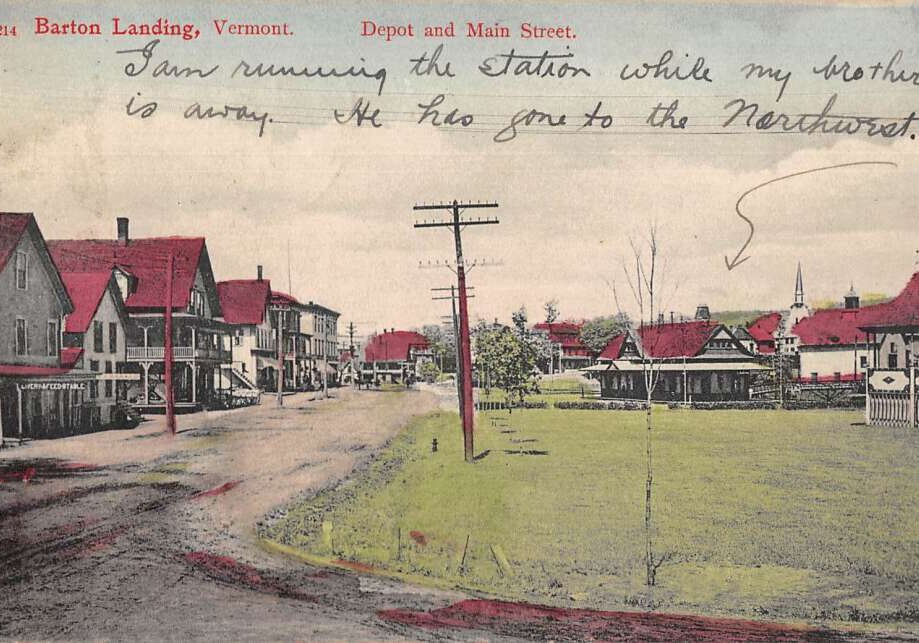 214 Barton Landing, Vermont. Depot and Main Street.
I am running the station while my brother
is away. He has gone to the Northwest.
LIVERY & FEED STABLE